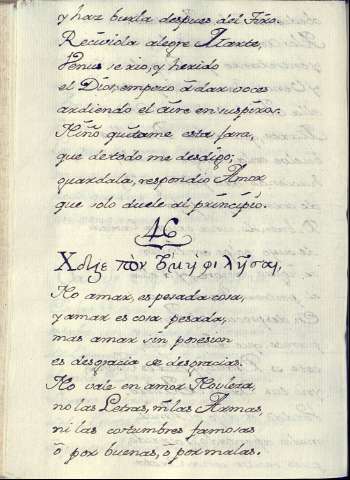 y haz burla despues del Tiro.
Recíviola alegre Marte,
Venus se rio, y herido
el Dios, empezo à dar voces
ardiendo el aire en suspiros.
Niño quitame esta jara,
que de todo me desdigo;
guardala, respondio Amor
que solo duele al principio.
46
Χαλεπὸν τὸ μὴ φιλῆσαι,
No amar, es pesada cosa,
y amar es cosa pesada,
mas amar sin posesion
es desgracia de desgracias.
No vale en amor Nobleza,
no las Letras, ni las Armas,
ni las costumbres famosas
ò por buenas, o por malas.